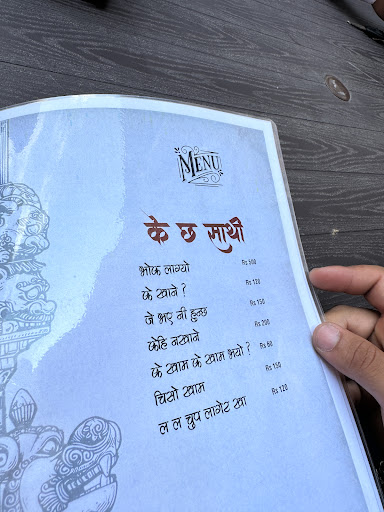 MENU
के छ साथी
भोक लाग्यो Rs
के खाने ? Rs 120
जे भए नी हुन्छ Rs 150
केहि नखाने Rs 200
के खाम के खाम भयो ? Rs 60
चिसो खाम Rs 150
ल ल चुप लागेर खा Rs 120